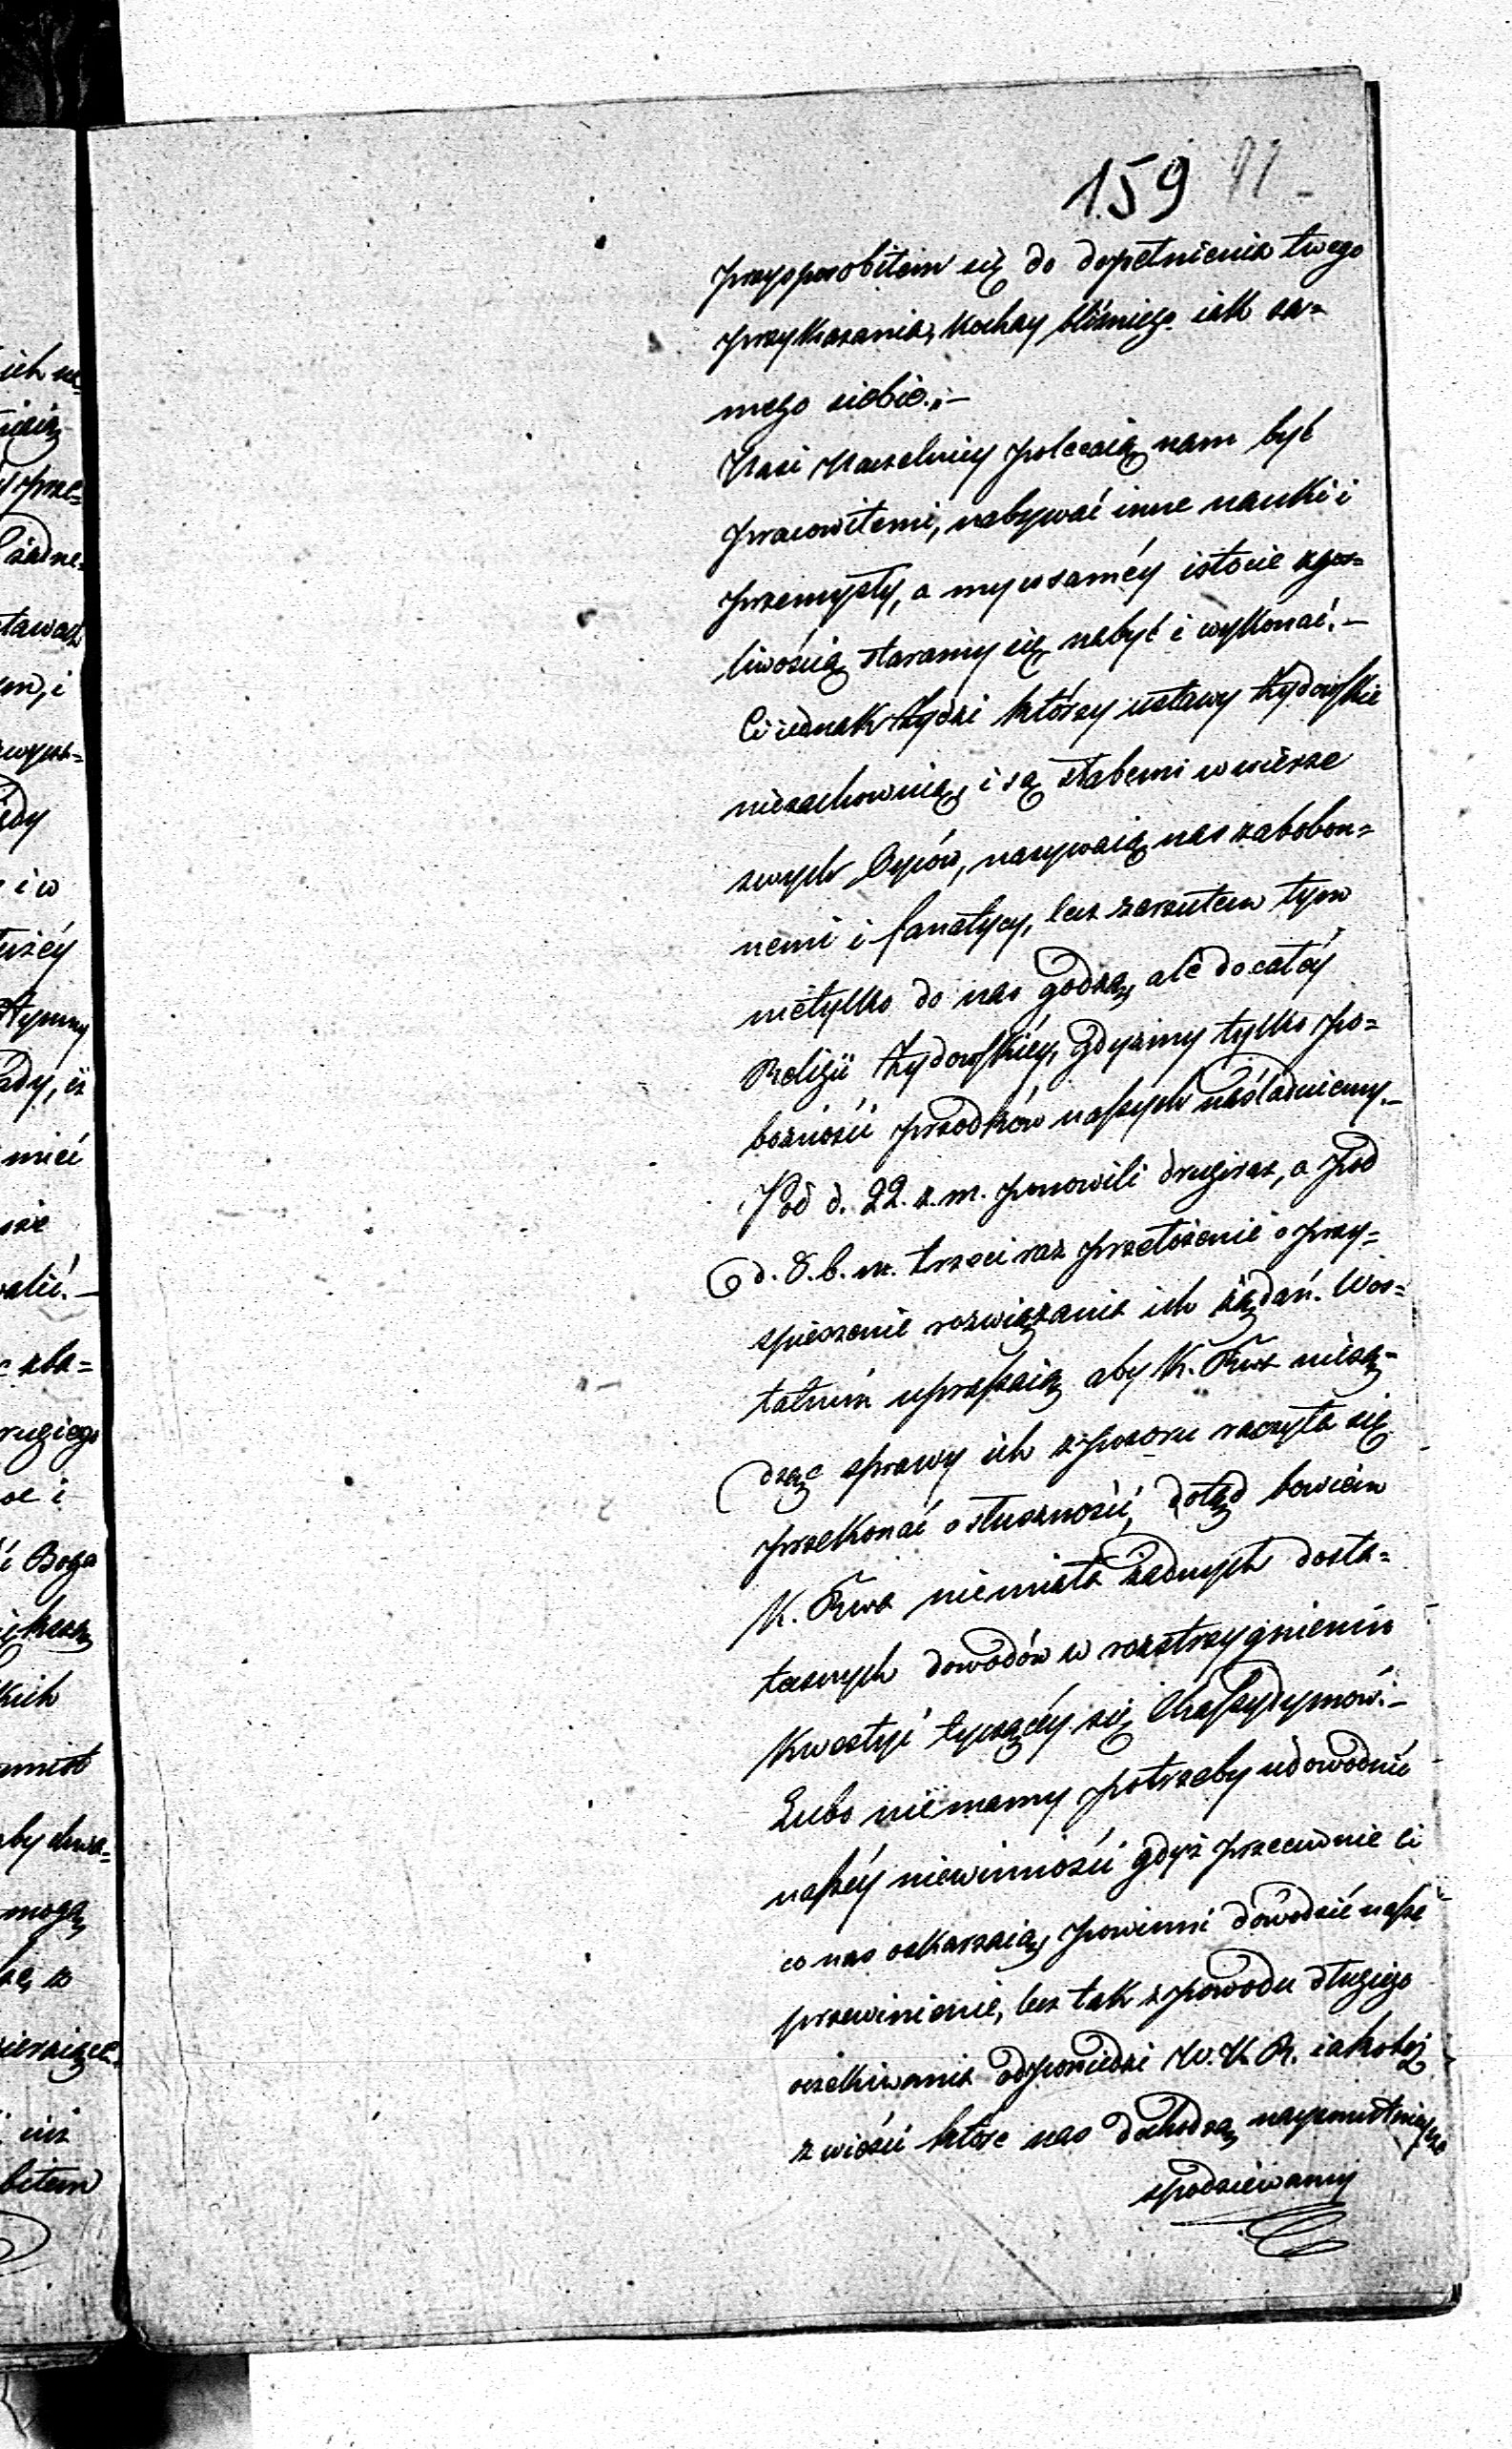 159 91
przysposobiłem się do dopełnienia twego
przykazania, kochay bliźniego iak sa=
mego siebie.„—
Nasi Naczelnicy polecaią nam być
pracowitemi, nabywać inne nauki i
przemysły, a my w saméy istocie z gor=
liwością staramy się nabyć i wykonać.—
Ci iednak Żydzi którzy ustawy żydowskie
niezachowuią, i są słabemi w wierze
swych Oyców, nazywaią nas zabobon=
nemi i fanatycy, lecz zarzutem tym
nietylko do nas godzą, ale do całéy
Religii żydowskiéy, gdyżmy tylko po=
bożności przodków naszych naśladuiemy.—
Pod d. 22. z. m. ponowili drugi raz, a pod
d. 8. b. m. trzeci raz przełożenie o przy=
spieszenie rozwiązania ich żądań. W os=
tatnim upraszaią aby K. Rwa niesą=
dząc sprawy ich z pozoru raczyła się
przekonać o słuszności, dotąd bowiem
K. Rwa niemiała żadnych dosta=
tecznych dowodów w rozstrzygnieniu
kwestyi tyczącéy się Chassydymów.—
Lubo niemamy potrzeby udowodnić
naszéy niewinności gdyż przeciwnie ci
co nas oskarżaią, powinni dowodzić nasze
przewinienie, lecz tak z powodu długiego
oczekiwania odpowiedzi W. K. R. iakoteż
z wieści które nas dochodzą naypomyślnieysze
spodziewamy
ich
prze=
żadne=
i
i w
mieć
rugiego
i Boga
mogą
z
iuż
bitem